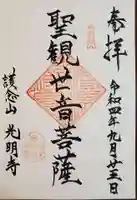 奉拝
令和四年九月廿三日
聖観世音菩薩
護念山 光明寺